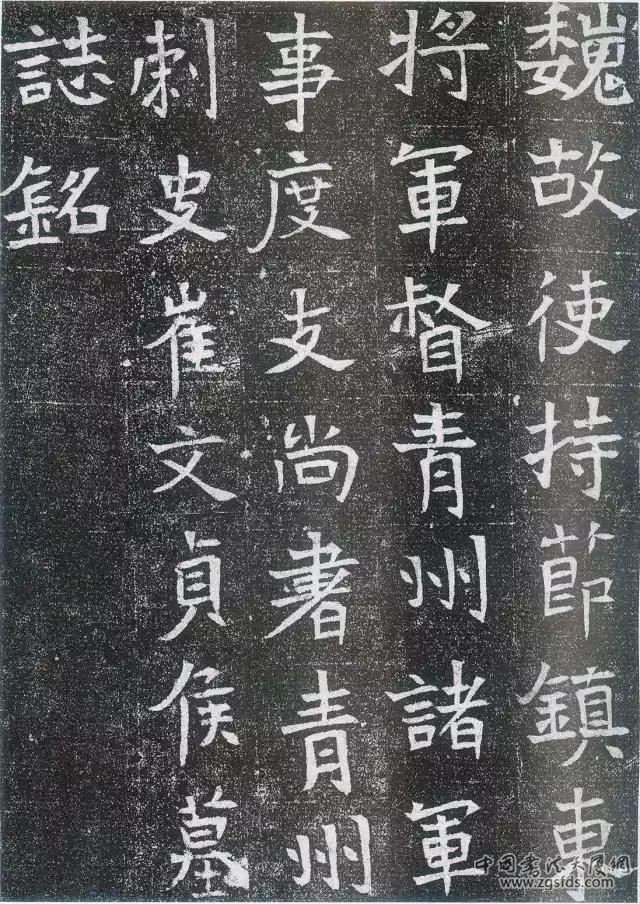 魏故使持節鎮東
將軍督青州諸軍
事度支尚書青州
刺史崔文貞侯墓
誌銘
中国书法大厦网
www.zgsfds.com